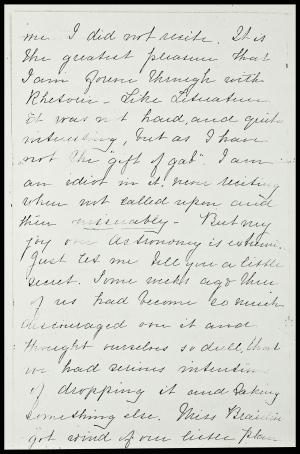 me I did not recite. It is
the greatest pleasure that
I am forever through with
Rhetoric - Like Literature
it was not hard, and quite
interesting, but as I have
not "the gift of gab" I am
an idiot in it: never reciting
when not called upon and
then miserably - But my
joy over Astronomy is extreme.
Just let me tell you a little
secret. Some weeks ago three
of us had become so much
discouraged over it and
thought ourselves so dull, that
we had serious intention
of dropping it and taking
something else. Miss
got wind of our little plan